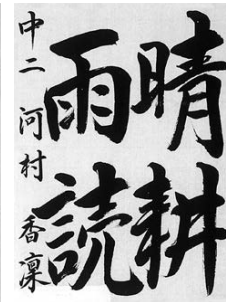 晴耕
雨読
中二 河村 香凜